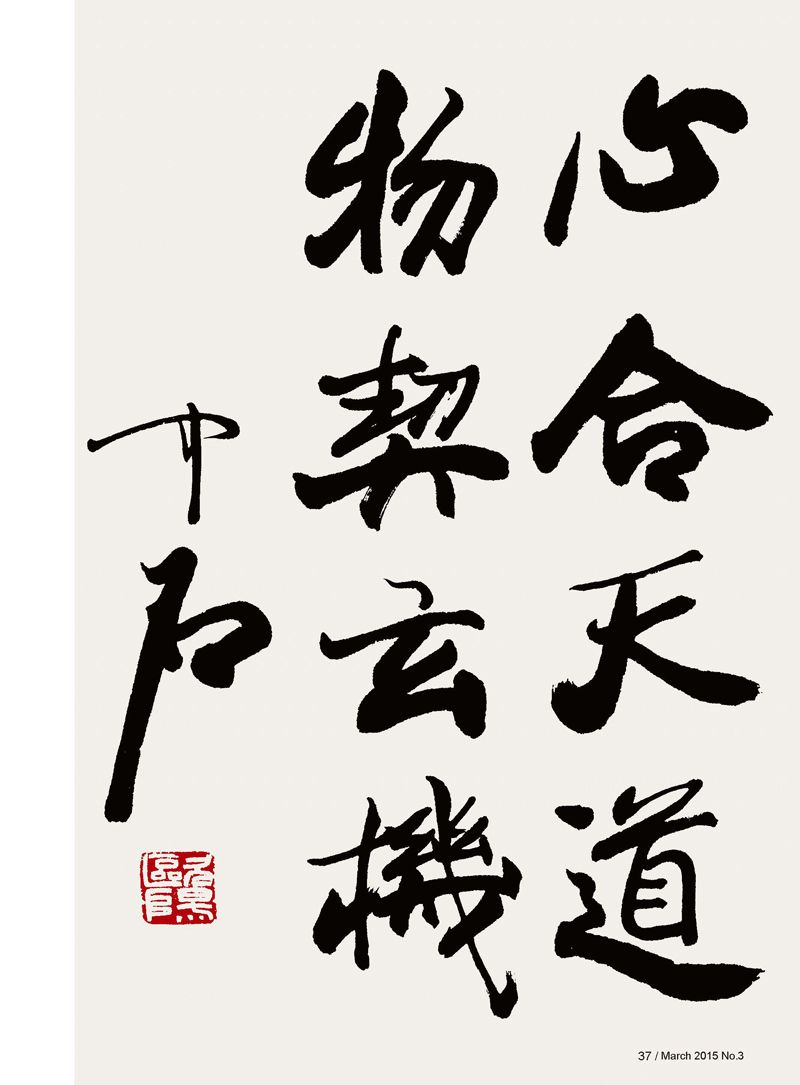 心合天道
物契玄機
中石
歐陽
37 / March 2015 No.3